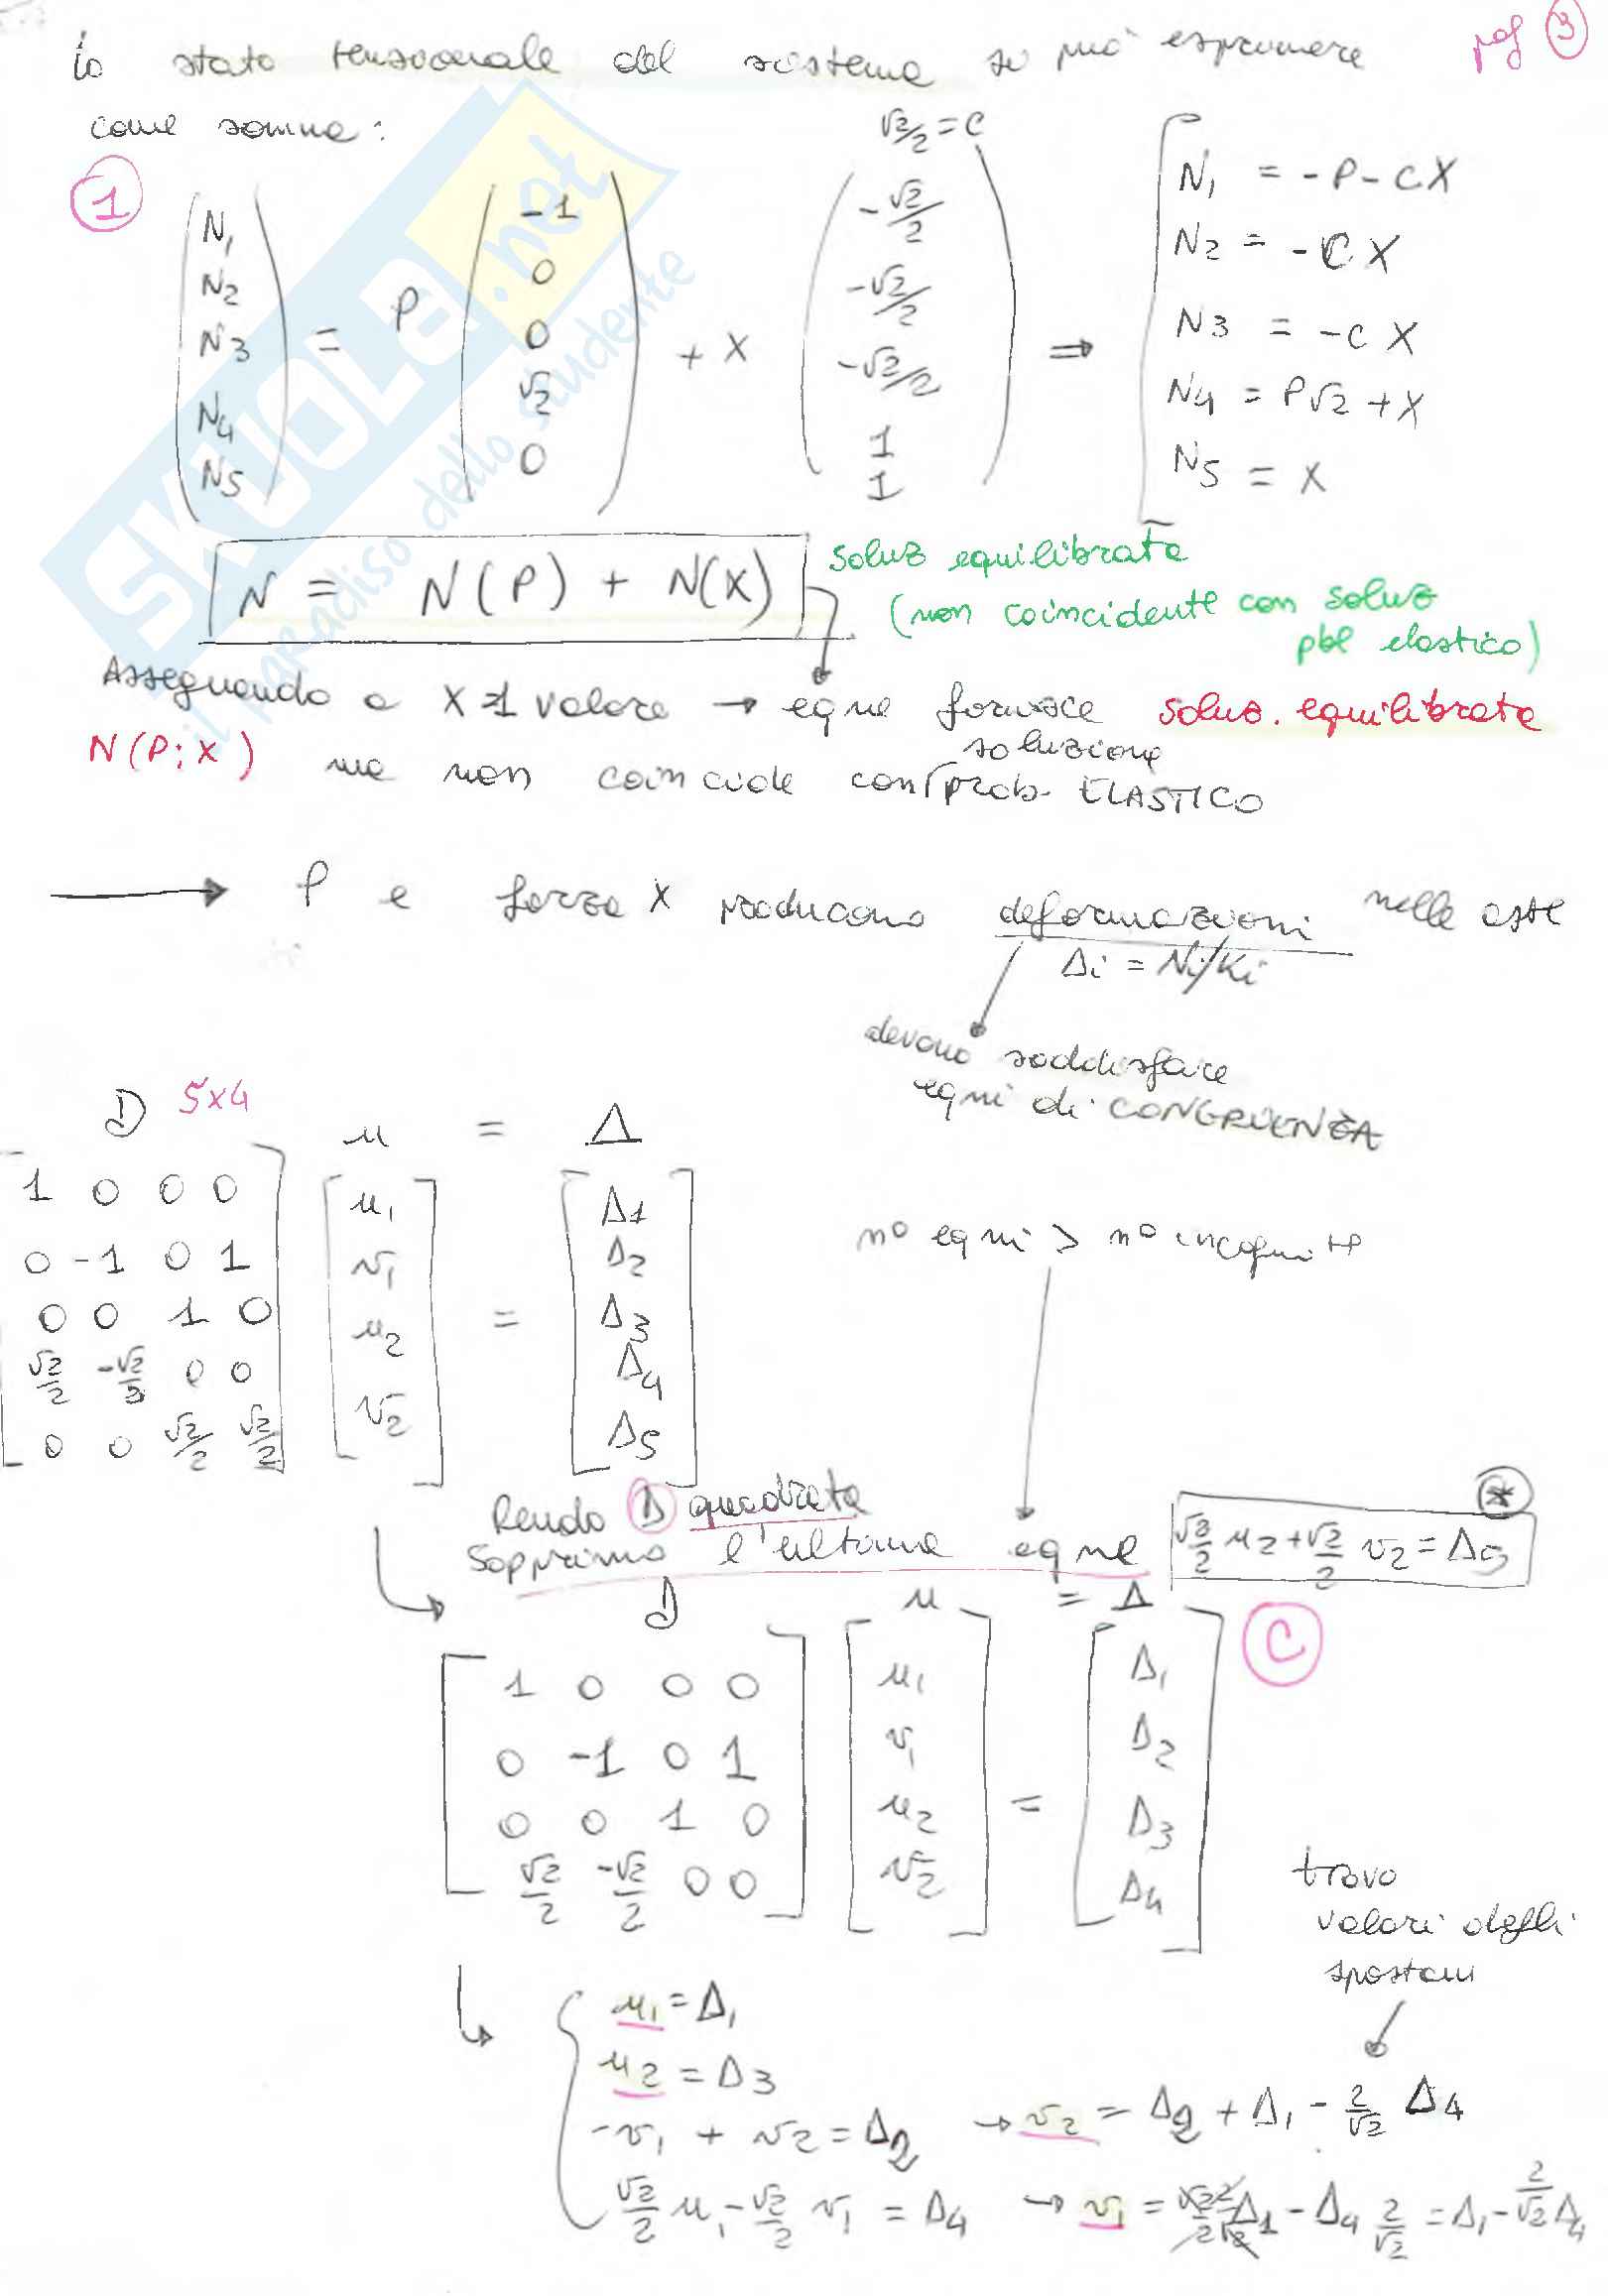 lo stato tensionale del sistema si può esprimere pag 3
come somma:
√2/2 = C
1
(N1 N2 N3 N4 N5) = P (-1 0 0 √2 0) + X (-√2/2 -√2/2 -√2/2 1 1) ⇒
N1 = -P - CX
N2 = -CX
N3 = -CX
N4 = P√2 + X
N5 = X
N = N(P) + N(X)
soluz equilibrata
(non coincidente con soluz
pbl elastico)
Assegnando a X 1 valore → eqne fornisce soluz. equilibrata
N(P;X) ma non coincide con soluzione prob. ELASTICO
→ P e forza X producono deformazioni nelle aste
Δi = Ni/Ki
devono soddisfare
eqni di CONGRUENZA
D 5x4 u = Δ
1 0 0 0 u1 Δ1
0 -1 0 1 v1 Δ2
0 0 1 0 u2 = Δ3
√2/2 -√2/2 0 0 v2 Δ4
0 0 √2/2 √2/2 Δ5
n° eqni > n° incognite
Rendo D quadrata
Sopprimo l'ultima eqne √2/2 u2 + √2/2 v2 = Δ5 *
D u = Δ
C
1 0 0 0 u1 Δ1
0 -1 0 1 v1 Δ2
0 0 1 0 u2 = Δ3
√2/2 -√2/2 0 0 v2 Δ4
trovo
valori degli
spostam
u1 = Δ1
u2 = Δ3
-v1 + v2 = Δ2 → v2 = Δ2 + Δ1 - 2/√2 Δ4
√2/2 u1 - √2/2 v1 = Δ4 → v1 = √2/2 2/√2 Δ1 - Δ4 2/√2 = Δ1 - 2/√2 Δ4
SKUOLA.net
il paradiso dello studente